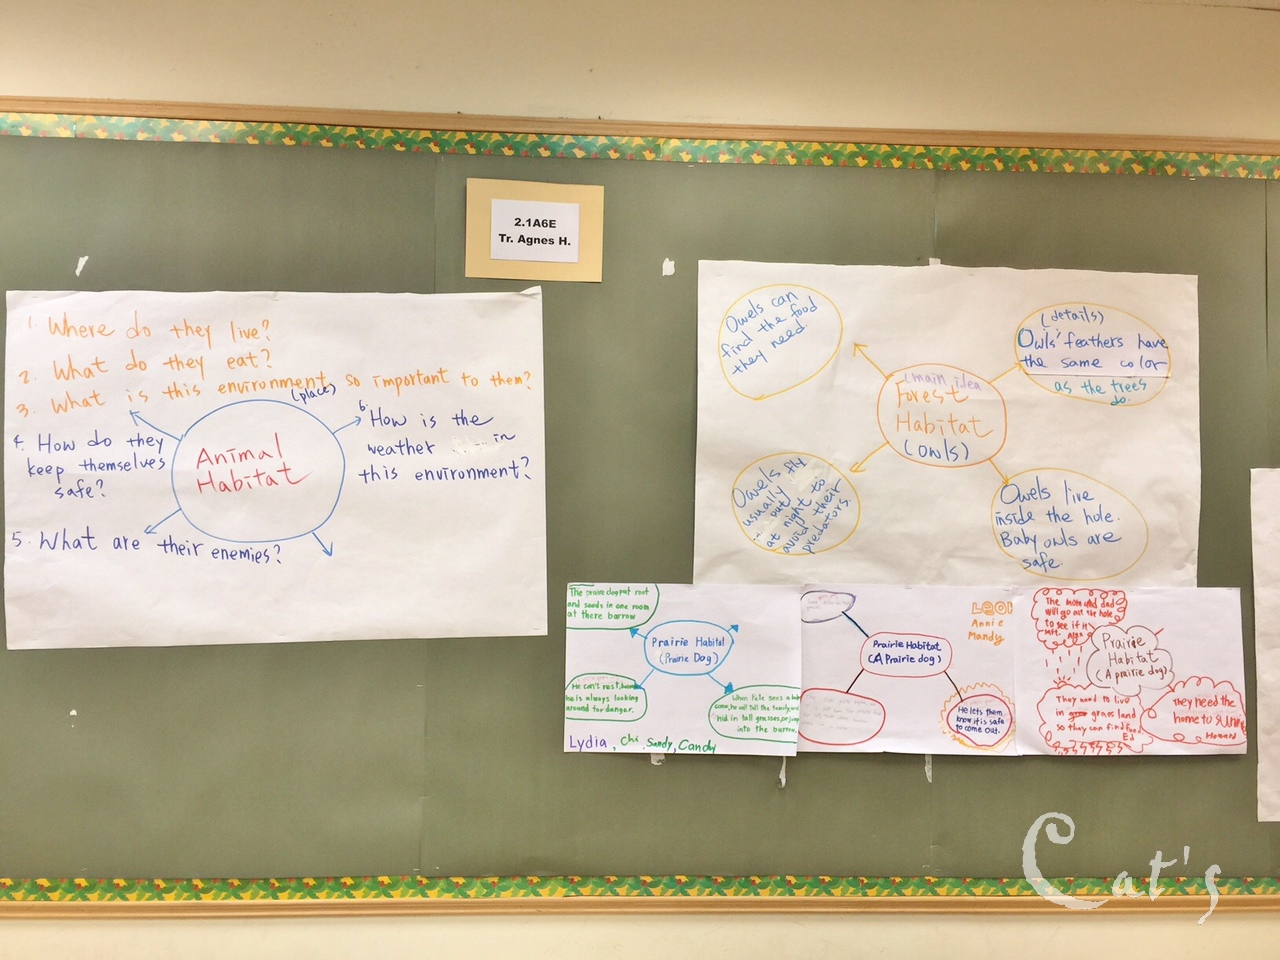 2.1A6E
Tr. Agnes H.
1. Where do they live?
2. What do they eat?
3. What is this environment so important to them?
(place)
4. How do they
keep themselves
safe?
5. What are their enemies?
6. How is the
weather in
this environment?
Animal
Habitat
Owels can
find the food
they need.
(details)
Owls' feathers have
the same color
as the trees
do.
(main idea
Forest
Habitat
(owls)
Owels fly
usually out
at night to
avoid their
predators.
Owels live
inside the hole.
Baby owls are
safe.
The prairie dog put root
and seeds in one room
at there burrow
Prairie Habitat
(Prairie Dog)
He can't rest,
he is always looking
around for danger.
When Pete sees a
come, he will tell the family, and
hid in tall grasses, or jump
into the burrow.
Lydia, Chi, Sandy, Candy
LEO
Annie
Mandy
Prairie Habitat
(A Prairie dog)
He lets them
know it is safe
to come out.
The mom and dad
will go out the hole
to see if it
Prairie
Habitat
(A prairie dog)
They need to live
in grass land
so they can find food.
Ed
They need the
home to
Howard
Cat's